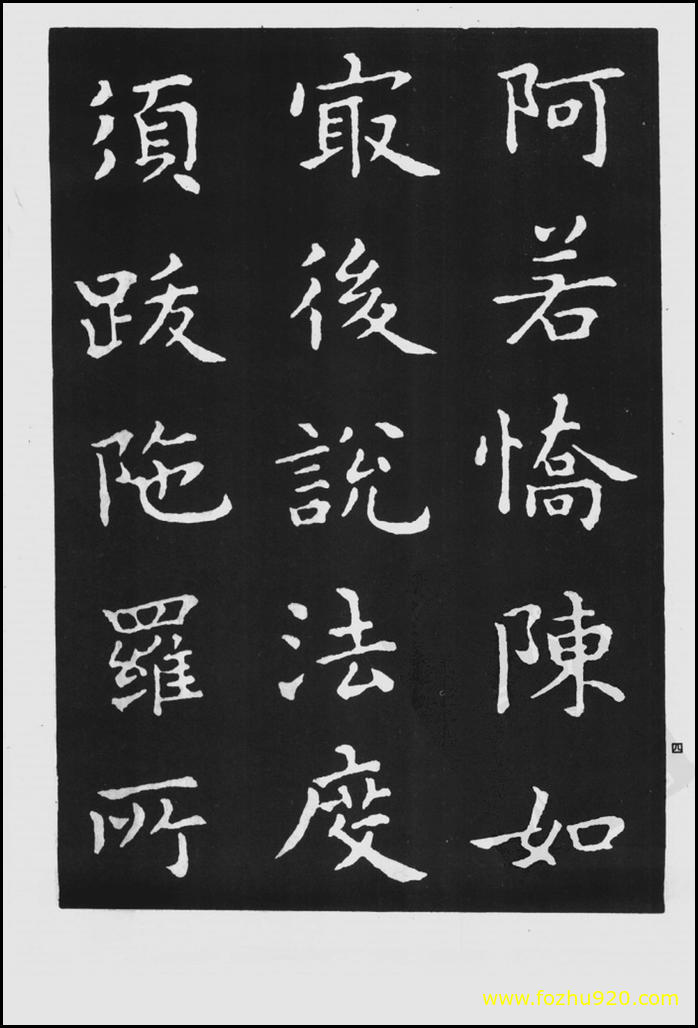 阿若憍陳如
㝡後說法度
須跋陁羅所
四
www.fozhu920.com